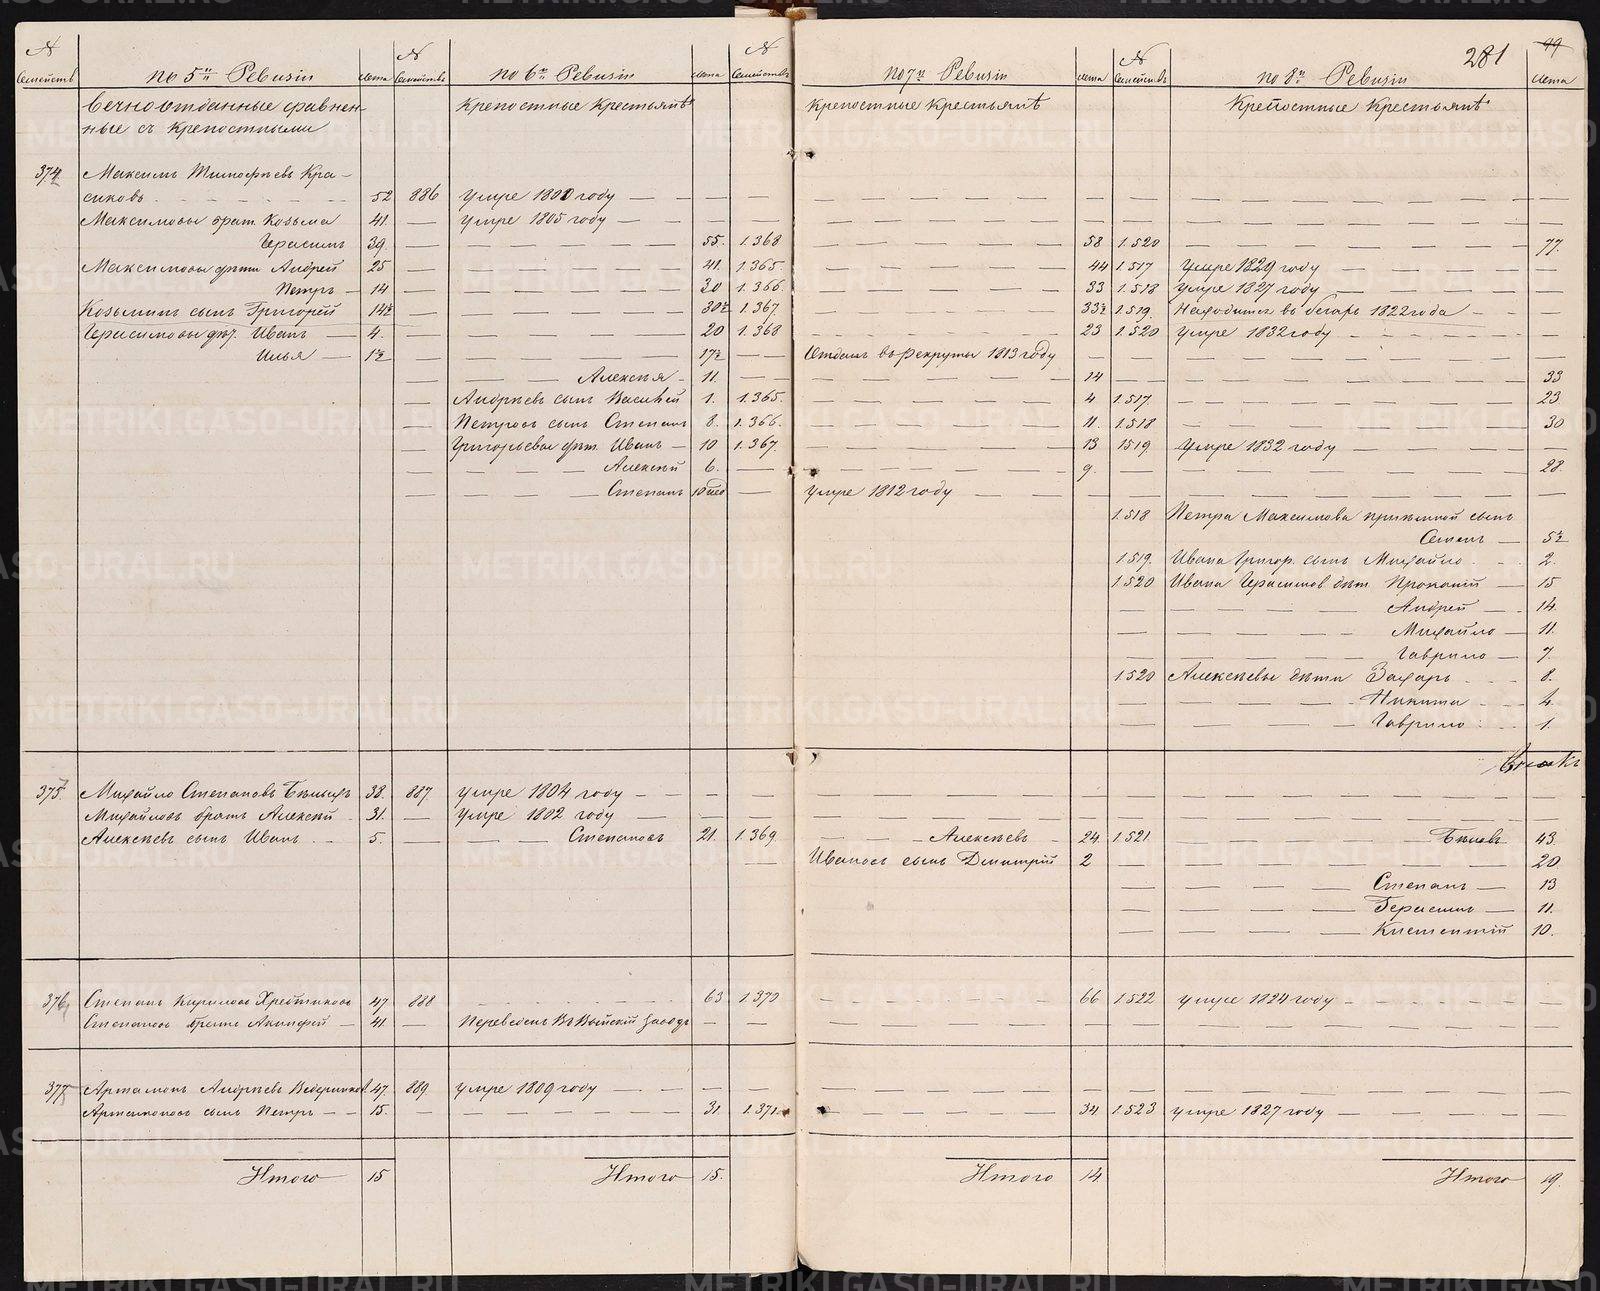 № Семействъ | по 5й Ревизiи | Лета | № Семействъ | по 6й Ревизiи | Лета | № Семействъ | по 7й Ревизiи | Лета | № Семействъ | по 8й Ревизiи | 281 | 99 | Лета
Вечноотданные сравнен- | Крепостные Крестьянѣ | Крепостные Крестьянѣ | Крепостные Крестьянѣ
ные съ Крепостными
374 | Максимъ Тимофѣевъ Кра-
сиковъ | 52 | 886 | Умре 1800 году
Максимовы брат. Козьма | 41. | Умре 1805 году
Герасимъ | 39. | 55. | 1.368 | 58 | 1.520 | 77.
Максимовы дѣти Андрей | 25 | 41. | 1.365. | 44 | 1.517 | Умре 1829 году
Петръ | 14 | 30 | 1.366 | 33 | 1.518 | Умре 1827 году
Козьминъ сынъ Григорей | 14½ | 30½ | 1.367. | 33½ | 1.519. | Находится въ бегахъ 1822 года
Герасимовы дѣт. Иванъ | 4. | 20 | 1.368 | 23 | 1.520 | Умре 1832 году
Илья | 1½ | 17½ | Отданъ въ рекруты 1813 году
Алексѣя | 11. | 14 | 33
Андрѣевъ сынъ Василей | 1. | 1.365. | 4 | 1.517 | 23
Петровъ сынъ Степанъ | 8. | 1.366. | 11. | 1.518 | 30
Григорьевы дѣт. Иванъ | 10 | 1.367. | 13 | 1519 | Умре 1832 году
Алексѣй | 6. | 9. | 28.
Степанъ | 10 нед | Умре 1812 году
1.518 | Петра Максимова приемной сынъ
Семенъ | 5½
1519. | Ивана Григор. сынъ Михайло | 2.
1.520 | Ивана Герасимов. дѣт. Прокопiй | 15
Андрей | 14.
Михайло | 11.
Гаврило | 7.
1.520 | Алексѣевы дѣти Захаръ | 8.
Никита | 4.
Гаврило | 1.
375. | Михайло Степановъ Бѣлыхъ | 38. | 887. | Умре 1804 году
Михайловъ братъ Алексѣй | 31. | Умре 1802 году
Алексѣевъ сынъ Иванъ | 5. | Степановъ | 21. | 1.369. | Алексѣевъ | 24. | 1.521. | Бѣловъ | 43.
Ивановъ сынъ Дмитрiй | 2 | 20.
Степанъ | 13
Герасимъ | 11.
Климентiй | 10.
376 | Степанъ Кириловъ Хребтиковъ | 47. | 888 | 63 | 1.370 | 66 | 1.522 | Умре 1824 году
Степановъ братъ Акинфей | 41. | Переведенъ въ Выйскiй Заводъ
377 | Артамонъ Андрѣевъ Ведерников | 47. | 889. | Умре 1809 году
Артамоновъ сынъ Петръ | 15. | 31. | 1.371. | 34. | 1.523 | Умре 1827 году
Итого | 15 | Итого | 15. | Итого | 14 | Итого | 19.
METRIKI.GASO-URAL.RU